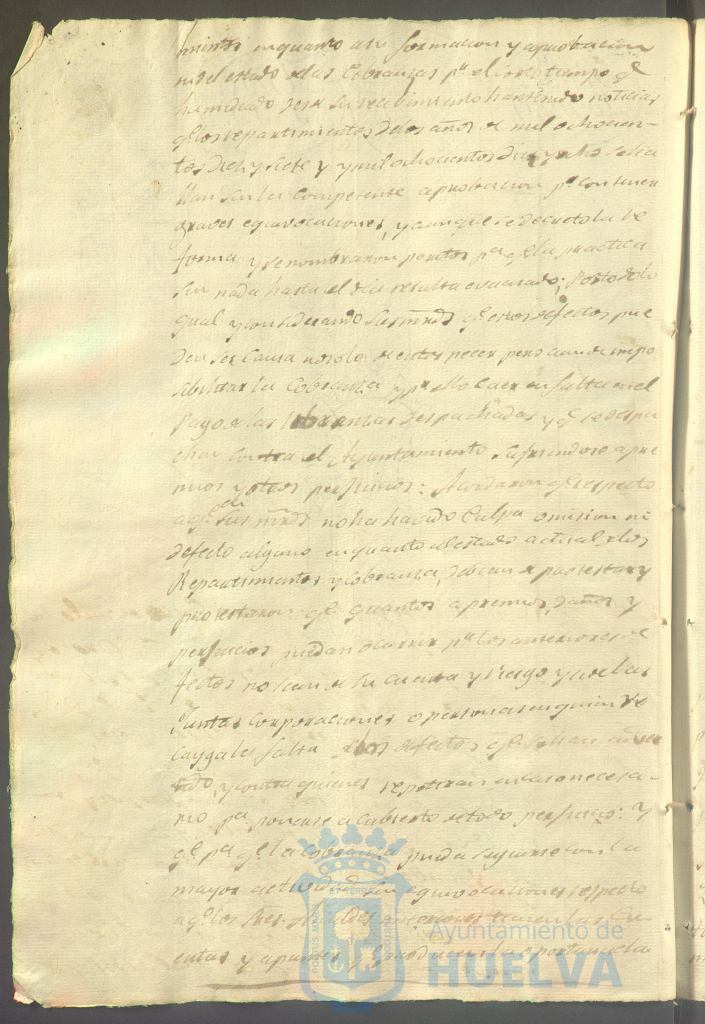 miento en quanto a su formacion y aprobacion
ni del estado de las Cobranzas pr el corto tiempo qe
ha mediado desde su recibimiento haviendo noticias
qe los repartimientos de los años de mil ochocien-
tos diez y siete y mil ochocientos diez y ocho se ha
llan sin la competente aprobacion pr contener
graves equivocaciones, y aunque se decretó la re
forma y se nombraron peritos pa qe la practica
sen nada hasta el dia resulta evacuado; Por todo lo
qual y considerando sus mrds qe estos defectos pue
den ser causa no solo de entorpecer pero aun de impo
sibilitar la Cobranza y pr ello caer en falta en el
Pago de las libranzas despachadas y qe se despa
chen contra el Ayuntamiento sufriendose apre
mios y otros perjuicios: Acordaron qe respecto
a qe de sus mrds no ha havido Culpa omision ni
defecto alguno en quanto al estado actual de los
Repartimientos y Cobranza, debian de protestar y
protestaron qe quantos apremios, daños y
perjuicios puedan ocurrir pr los anteriores de
fectos no sean de su cuenta y riesgo y si de las
Juntas Corporaciones o personas en quienes
cayga la falta de los defectos qe se han adver
tido, y contra quienes repetiran en caso necesa-
rio pa ponerse a cubierto de todo perjuicio: Y
qe pa qe la Cobranza pueda seguirse con la
mayor actividad sin equivocaciones respecto
a qe los Sres. Alcaldes anteriores tienen las Cu
entas y apuntes
Ayuntamiento de
HUELVA